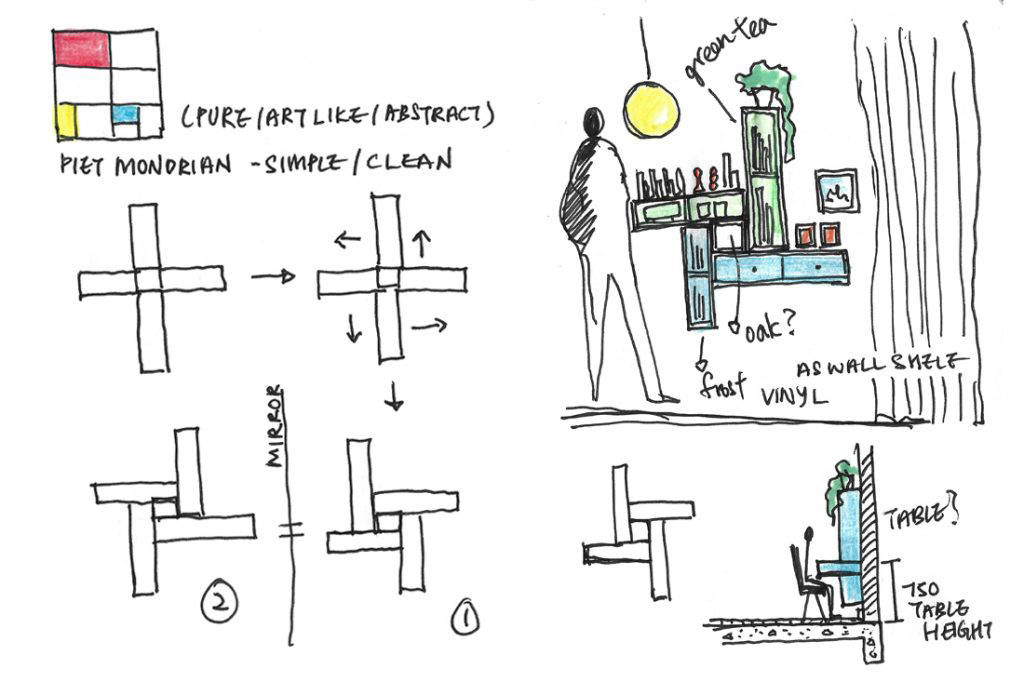 (PURE/ARTLIKE/ABSTRACT)
PIET MONDRIAN - SIMPLE/CLEAN
MIRROR
②
①
green tea
oak?
frost
AS WALL SHELF
VINYL
TABLE?
750
TABLE
HEIGHT